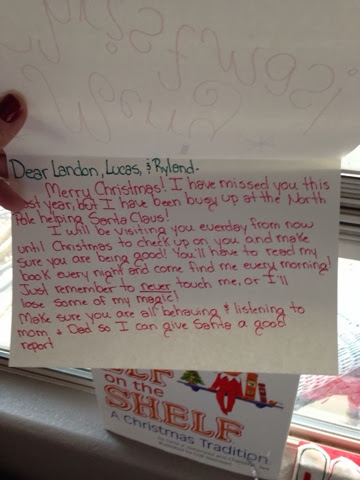 Dear Landon, Lucas, & Ryland-
Merry Christmas! I have missed you this
past year, but I have been busy up at the North
Pole helping Santa Claus!
I will be visiting you everday from now
until Christmas to check up on you and make
sure you are being good! You'll have to read my
book every night and come find me every morning!
Just remember to never touch me, or I'll
lose some of my magic!
Make sure you are all behaving & listening to
mom & Dad so I can give Santa a good
report
ELF
on the
SHELF
A Christmas Tradition